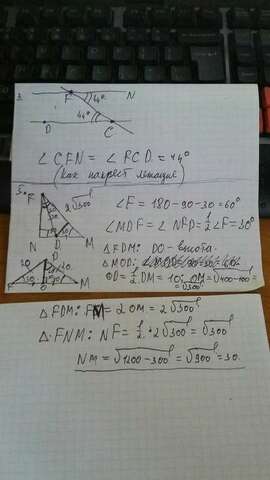 3.
F N
44°
44°
D C
∠ CFN = ∠ FCD = 44°
(как накрест лежащие)
5.
F
2√300
N D M
∠F = 180-90-30 = 60°
∠MDF = ∠ NFD = 1/2 ∠F = 30°
△ FDM: DO - высота.
△ MOD:
OD = 1/2 DM = 10; OM = √400-100 =
= √300
20
F O M
△ FDM: FM = 2 OM = 2√300
△ FNM: NF = 1/2 · 2√300 = √300
NM = √1200-300 = √900 = 30.